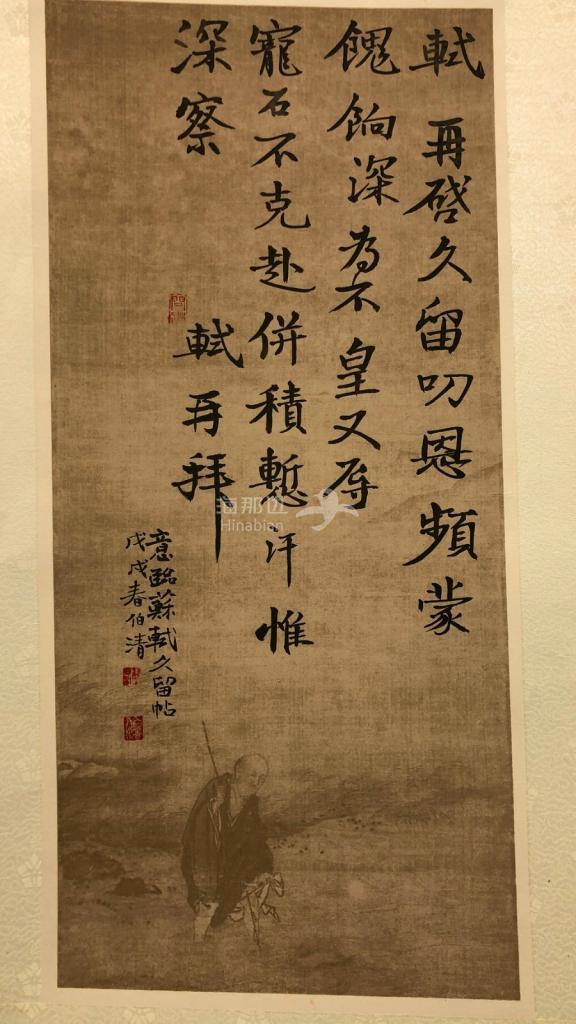 軾再啓久留叨恩頻蒙
餽餉深為不皇又辱
寵召不克赴併積慙汗惟
深察
軾再拜
意臨蘇軾久留帖
戊戌春伯清
海那边
Hinabian